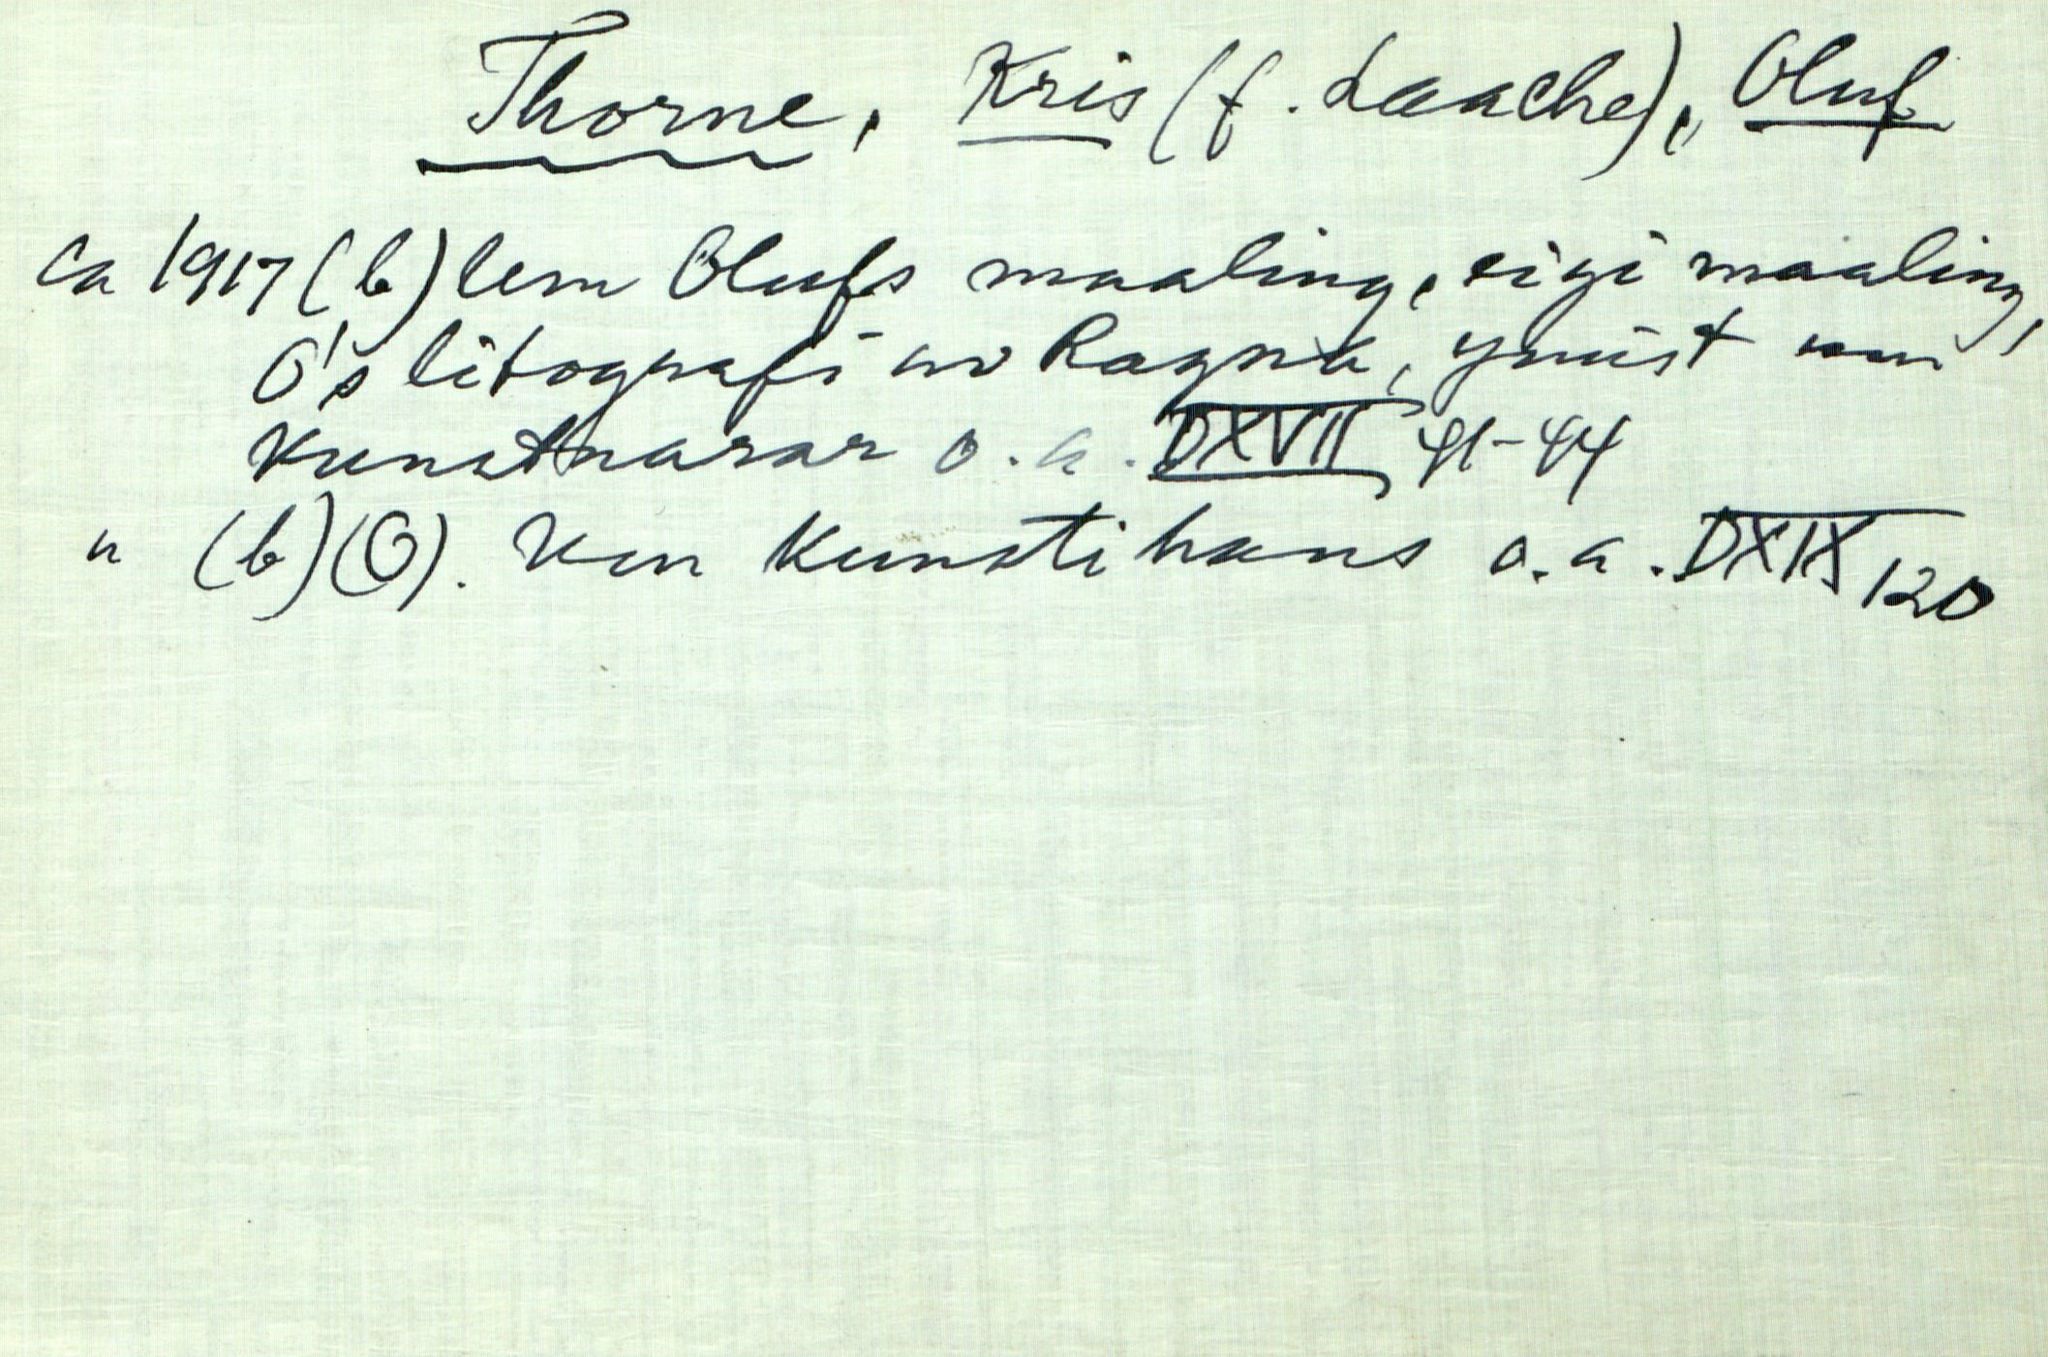 Thorne, Kris (f. Laache), Oluf
ca 1917 (b) um Olufs maaling, eigi maaling,
O's litografi av Ragna, ymist um
kunstnarar o.a. DXVII 41-44
" (b)(O). Um kunsti hans o.a. DXIX 120